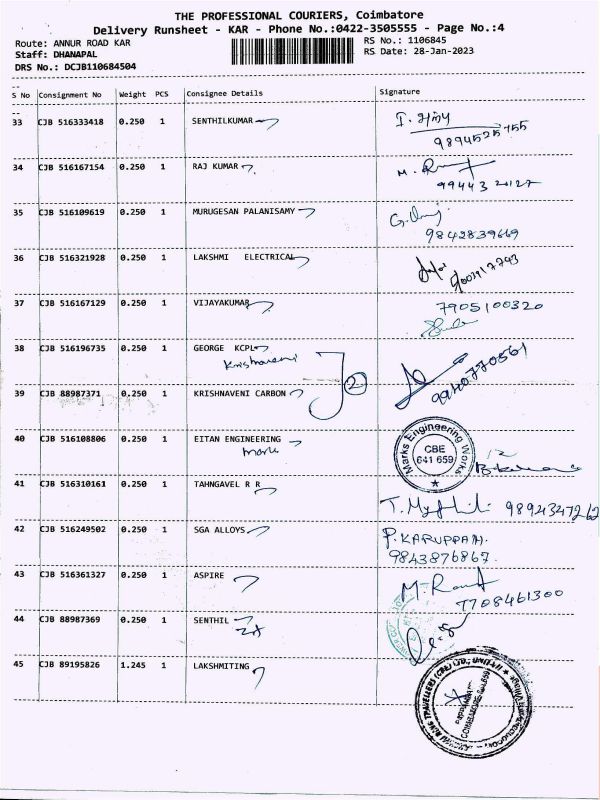 THE PROFESSIONAL COURIERS, Coimbatore
Delivery Runsheet - KAR - Phone No.:0422-3505555 - Page No.:4
Route: ANNUR ROAD KAR
RS No.: 1106845
Staff: DHANAPAL
RS Date: 28-Jan-2023
DRS No.: DCJB110684504
S No Consignment No Weight PCS Consignee Details Signature
33 CJB 516333418 0.250 1 SENTHILKUMAR
34 CJB 516167154 0.250 1 RAJ KUMAR
35 CJB 516109619 0.250 1 MURUGESAN PALANISAMY
9842839669
36 CJB 516321928 0.250 1 LAKSHMI ELECTRICAL
37 CJB 516167129 0.250 1 VIJAYAKUMAR 7905100320
38 CJB 516196735 0.250 1 GEORGE KCPL
Krishnaveni
2
9940770561
39 CJB 88987371 0.250 1 KRISHNAVENI CARBON
40 CJB 516108806 0.250 1 EITAN ENGINEERING
Marks Engineering Works
CBE
641 659
41 CJB 516310161 0.250 1 TAHNGAVEL R R
9894347262
42 CJB 516249502 0.250 1 SGA ALLOYS P. KARUPPAN.
9843876867.
43 CJB 516361327 0.250 1 ASPIRE
7708461300
44 CJB 88987369 0.250 1 SENTHIL
45 CJB 89195826 1.245 1 LAKSHMITING